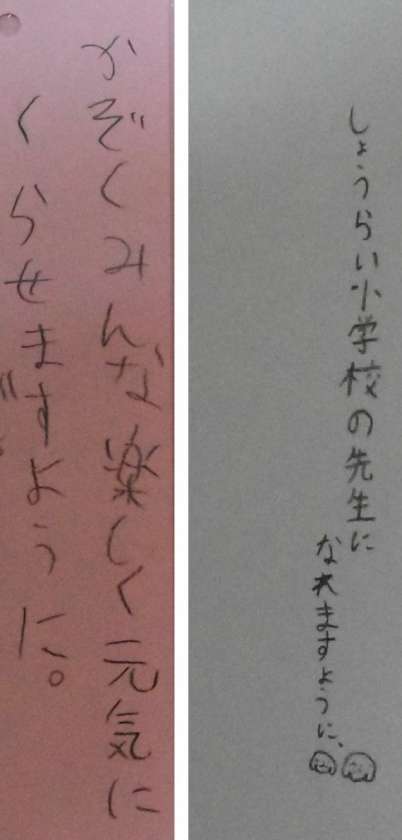 かぞくみんな楽しく元気に
くらせますように。
しょうらい小学校の先生に
なれますように、